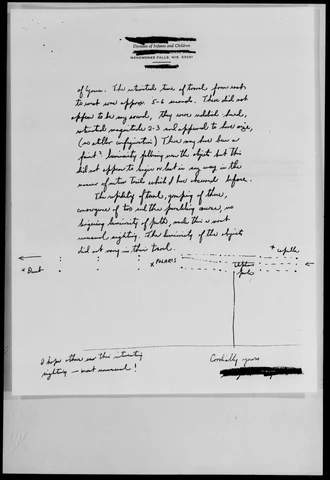 Diseases of Infants and Children
MENOMONEE FALLS, WIS. 53051
of Lyrae. The estimated time of travel from east
to west was approx. 5-6 seconds. There did not
appear to be any sound, they were reddish hued,
estimated magnitude 2-3 and appeared to have size,
(no stellar configuration) There may have been a
faint? luminosity following the objects but this
did not appear to begin or last in any way in the
manner of meteor trails which I have observed before.
The rapidity of travel, grouping of three,
convergence of two and the parallel course, no
luminosity of paths, made this a most
unusual sighting. The luminosity of the objects
did not vary in their travel.
* Capella
X POLARIS
I hope others saw this interesting
sighting — most unusual!
Cordially yours